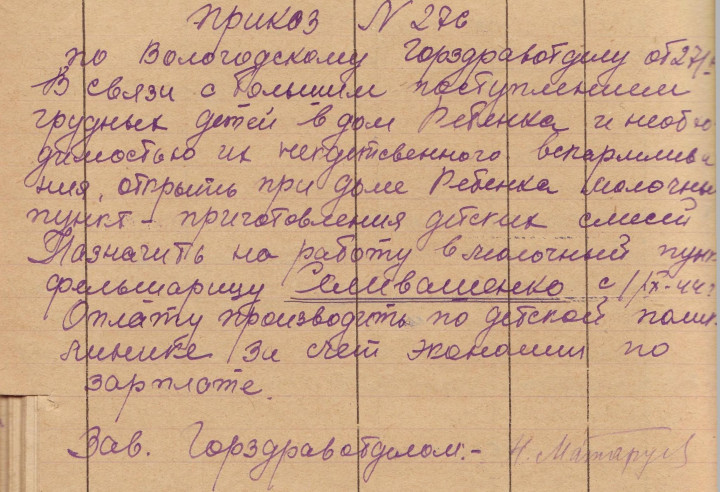 Приказ N 276
по Вологодскому Горздравотделу от 27/
В связи с большим поступлением
грудных детей в дом Ребенка и необхо
димостью их искусственного вскармлива
ния, открыть при доме Ребенка молочный
пункт - приготовления детских смесей
Назначить на работу в молочный пунк
фельшарицу Селивашенко с 1/IX-44г
Оплату производить по детской поли
клинике за счет экономии по
зарплате.
Зав. Горздравотделом: -